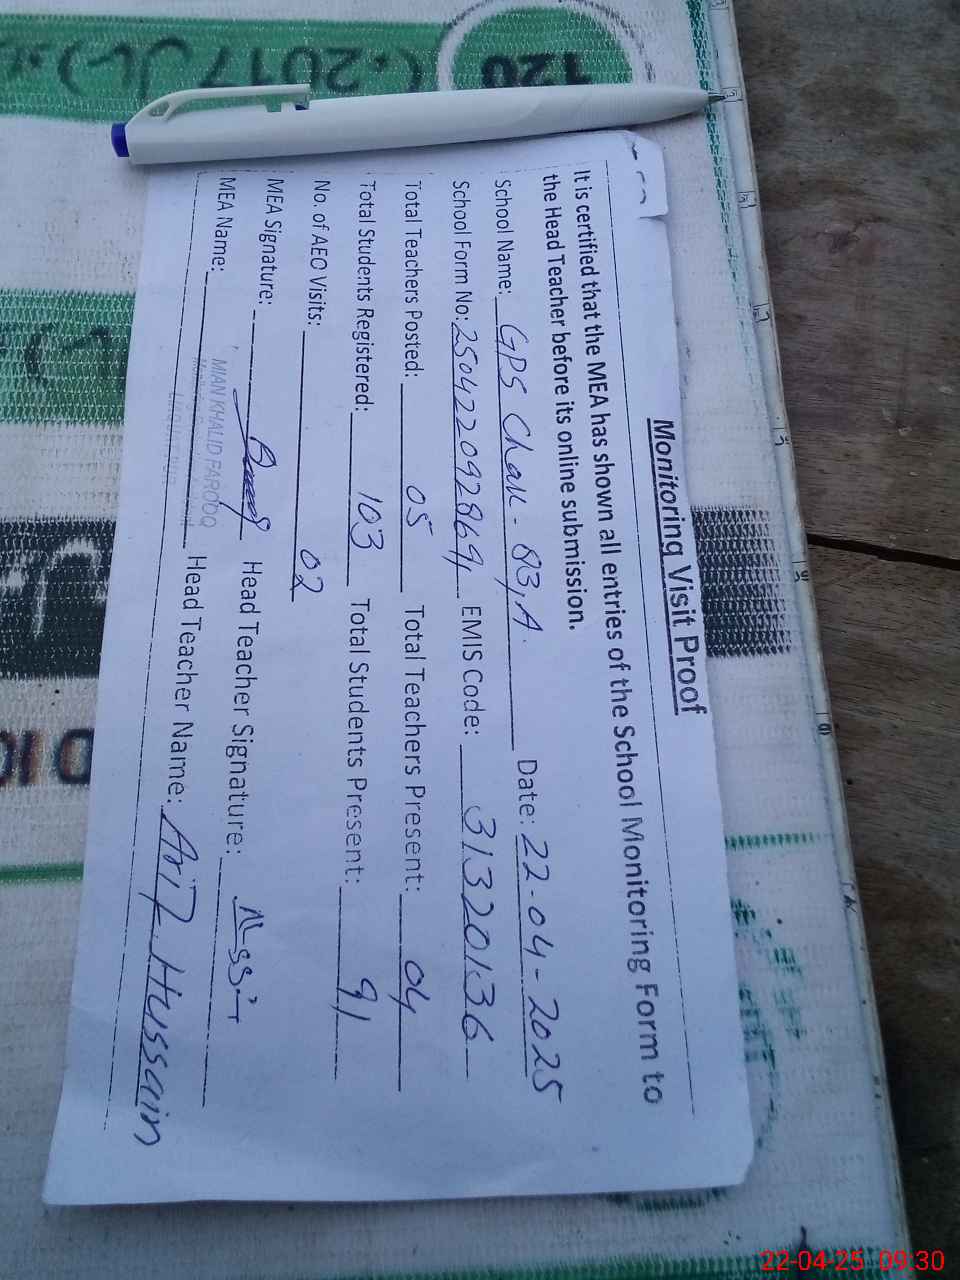 Monitoring Visit Proof
It is certified that the MEA has shown all entries of the School Monitoring Form to
the Head Teacher before its online submission.
School Name: GPS Chak - 83, A. Date: 22-04-2025
School Form No: 250422092869, EMIS Code: 31320136
Total Teachers Posted: 05 Total Teachers Present: 04
Total Students Registered: 103 Total Students Present: 91
No. of AEO Visits: 02
MEA Signature: Head Teacher Signature:
MEA Name: MIAN KHALID FAROOQ Head Teacher Name: Arif Hussain
120
2017
22-04-25 09:30